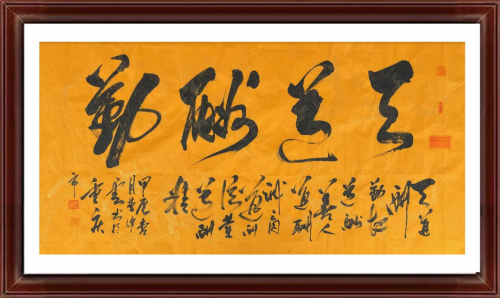 天道酬勤
天道
酬
勤地
道酬
善人
道酬
诚商
道酬
信業
道酬
精
甲辰春
重庆
市